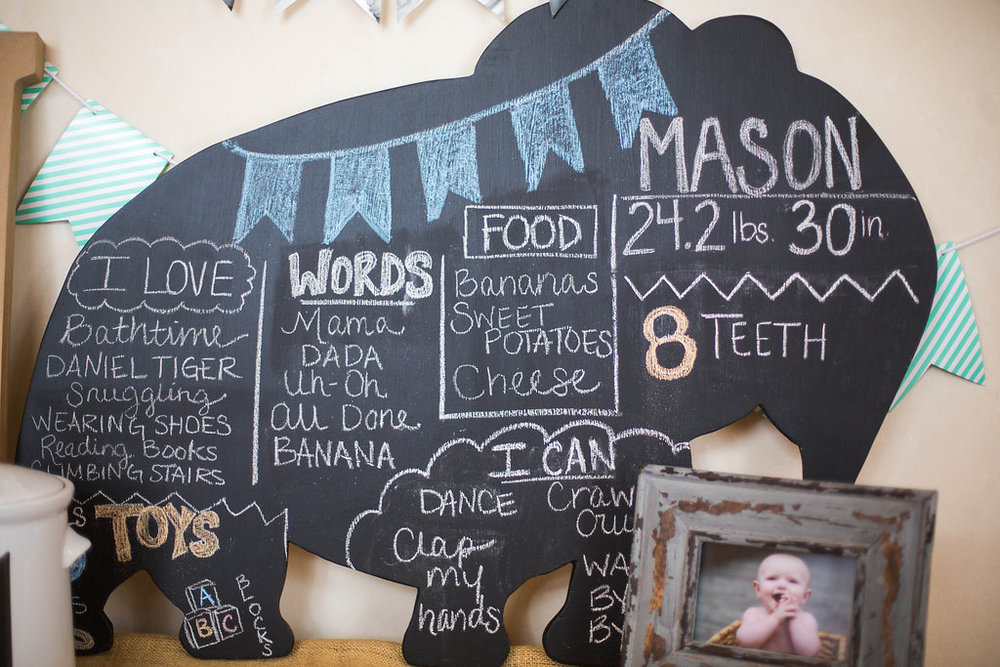 MASON
24.2 lbs. 30 in.
8 TEETH
I LOVE
Bathtime
DANIEL TIGER
Snuggling
WEARING SHOES
Reading Books
CLIMBING STAIRS
WORDS
Mama
DADA
Uh-Oh
All Done
BANANA
FOOD
Bananas
SWEET
POTATOES
Cheese
I CAN
DANCE
Clap
my
hands
TOYS
A
B C
Blocks